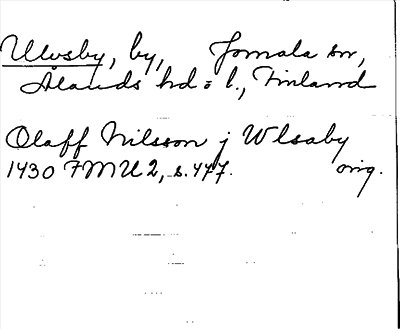 Ulvsby, by, Jomala sn,
Ålands hd o l., Finland
Olaff Nilsson j Wlsaby
1430 FMU 2, s. 447. orig.